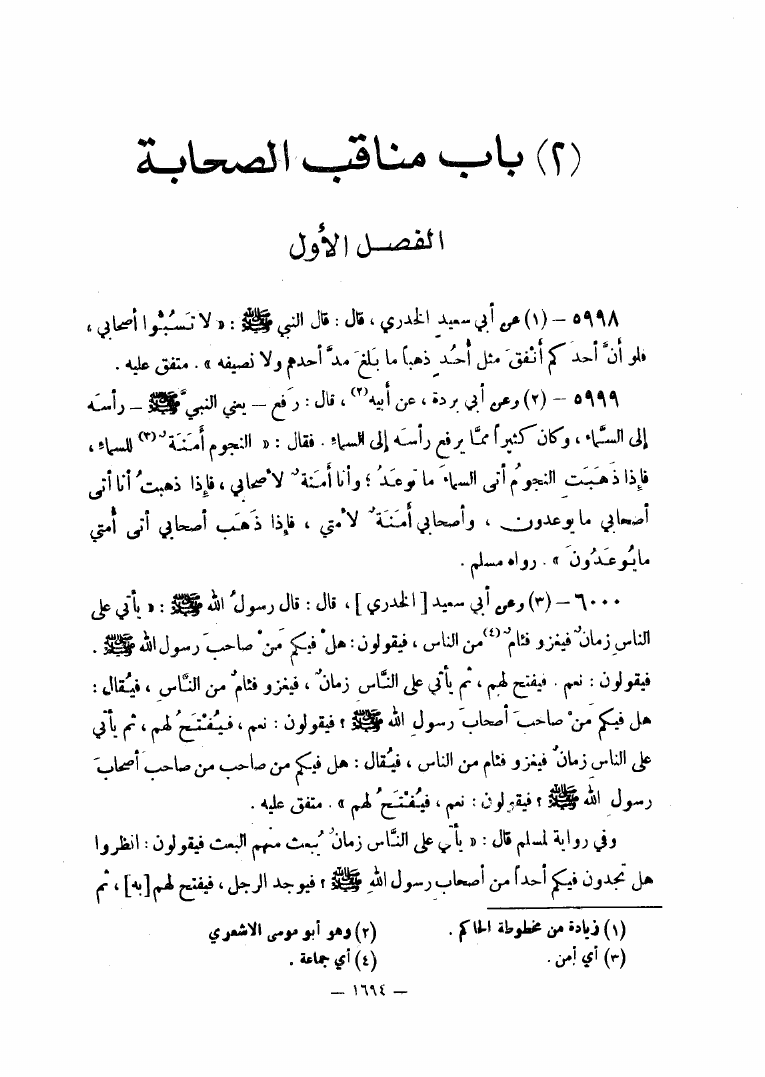 (٢) باب مناقب الصحابة
الفصل الأول
٥٩٩٨ – (١) عن أبي سعيد الخدري ، قال : قال النبي ﷺ : « لا تَسُبُّوا أصحابي ،
فلو أنَّ أحدَكم أنْفَقَ مثل أُحُدٍ ذهباً ما بَلَغَ مدَّ أحدهم ولا نصيفه » . متفق عليه .
٥٩٩٩ – (٢) وعن أبي بردة ، عن أبيه(٢) ، قال : رَفع – يعني النبيَّ ﷺ – رأسَه
إلى السَّماء ، وكان كثيراً ممَّا يرفع رأسَه إلى السماء . فقال : « النجوم أَمَنَةٌ(٣) للسماء ،
فإذا ذَهَبَتِ النجومُ أتى السماءَ ما توعَدُ ؛ وأنا أمَنَةٌ لأصحابي ، فإذا ذهبتُ أنا أتى
أصحابي ما يوعدون ، وأصحابي أَمَنَةٌ لأمتي ، فإذا ذَهَب أصحابي أتى أُمتي
مايُوعَدُونَ » . رواه مسلم .
٦٠٠٠ – (٣) وعن أبي سعيد [ الخدري ] ، قال : قال رسولُ الله ﷺ : « يأتي على
الناسِ زمانٌ فيغزو فئامٌ(٤) من الناس ، فيقولون : هلْ فيكم مَنْ صاحبَ رسولَ الله ﷺ .
فيقولون : نعم . فيفتح لهم ، ثم يأتي على النَّاس زمانٌ ، فيغزو فئامٌ من النَّاسِ ، فيُقال :
هل فيكم مَنْ صاحبَ أصحابَ رسولِ الله ﷺ ؟ فيقولون : نعم ، فيُفْتَحُ لهم ، ثم يأتي
على الناس زمانٌ فيغزو فئام من الناس ، فيُقال : هل فيكم من صاحب من صاحب أصحابَ
رسول الله ﷺ ؟ فيقولون : نعم ، فيُفْتَحُ لهم » . متفق عليه .
وفي رواية لمسلم قال : « يأتي على النَّاس زمانٌ يُبعث منهم البعث فيقولون : انظروا
هل تجدون فيكم أحداً من أصحاب رسول اللهِ ﷺ ؟ فيوجد الرجل ، فيفتح لهم [به] ، ثم
(١) زيادة من مخطوطة الحاكم .
(٢) وهو أبو موسى الاشعري
(٣) أي أمن .
(٤) أي جماعة .
– ١٦٩٤ –